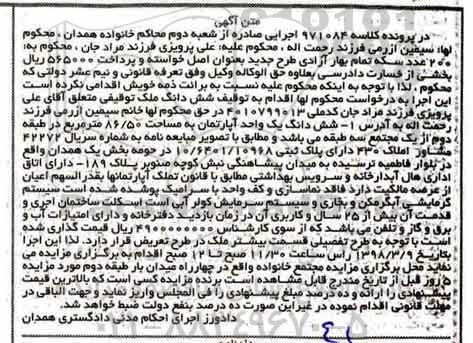 متن آگهی
در پرونده کلاسه ۹۷۱۰۸۴ اجرایی صادره از شعبه دوم محاکم خانواده همدان ، محکوم
لها: سیمین آزرمی فرزند رحمت اله ، محکوم علیه: علی پرویزی فرزند مراد جان ، محکوم به:
۲۰۰ عدد سکه تمام بهار آزادی طرح جدید بعنوان اصل خواسته و پرداخت ۵۶۵۰۰۰ ریال
بخشی از خسارت دادرسی بعلاوه حق الوکاله وکیل وفق تعرفه قانونی و نیم عشر دولتی که
محکوم ، لذا با توجه به اینکه محکوم علیه نسبت به برائت ذمه خویش اقدامی نکرده است
این اجرا به درخواست محکوم لها اقدام به توقیف شش دانگ ملک توقیفی متعلق آقای علی
پرویزی فرزند مراد جان کدملی ۴۰۱۰۷۹۹۰۱۳ در حق محکوم لها خانم سیمین آزرمی فرزند
رحمت اله به آدرس ۱- شش دانگ یک واحد آپارتمان به مساحت ۸۶/۵۰ مترمربع در طبقه
دوم از یک مجتمع سه طبقه می باشد و مطابق با تصویر مبایعه نامه به شماره سریال ۴۲۲۷۲
مشاور املاک ۴۳۰ دارای پلاک ثبتی ۱۰/۶۴۰۱/۱۰۹۶۸ در حومه بخش یک همدان واقع
در بلوار فاطمیه نرسیده به میدان پیشاهنگی نبش کوچه صنوبر پلاک ۱۸۹- دارای اتاق
اداری هال آبدارخانه و سرویس بهداشتی مطابق با قانون تملک آپارتمانها بقدرالسهم اعیان
از عرصه مالکیت دارد فاقد نماسازی و کف واحد با سرامیک پوشیده شده است سیستم
گرمایشی آبگرمکن و بخاری و سیستم سرمایش کولر آبی است اسکلت ساختمان آجری و
قدمت آن بیش از ۲۵ سال و کاربری آن در زمان بازدید دفترخانه و دارای امتیازات آب و
برق و گاز و تلفن می باشد که از سوی کارشناس ۴۹۰۰۰۰۰۰۰۰ ریال قیمت گذاری شده
است با توجه به طرح تفصیلی قسمت بیشتر ملک در طرح تعریض قرار دارد. لذا این اجرا
بتاریخ ۱۳۹۸/۳/۹ راس ساعت ۱۱/۳۰ صبح تا ۱۲ صبح اقدام به برگزاری مزایده می
نماید محل برگزاری مزایده مجتمع خانواده واقع در چهارراه میدان بار طبقه دوم مورد مزایده
۵ روز قبل از تاریخ مندرج قابل مشاهده است برنده مزایده کسی است که بالاترین قیمت
پیشنهادی را ارائه و ده درصد مبلغ پیشنهادی را فی المجلس واریز نماید و جهت الباقی در
مهلت قانونی اقدام نموده در غیر این صورت ده درصد بنفع دولت ضبط خواهد شد.
دادورز اجرای احکام مدنی دادگستری همدان